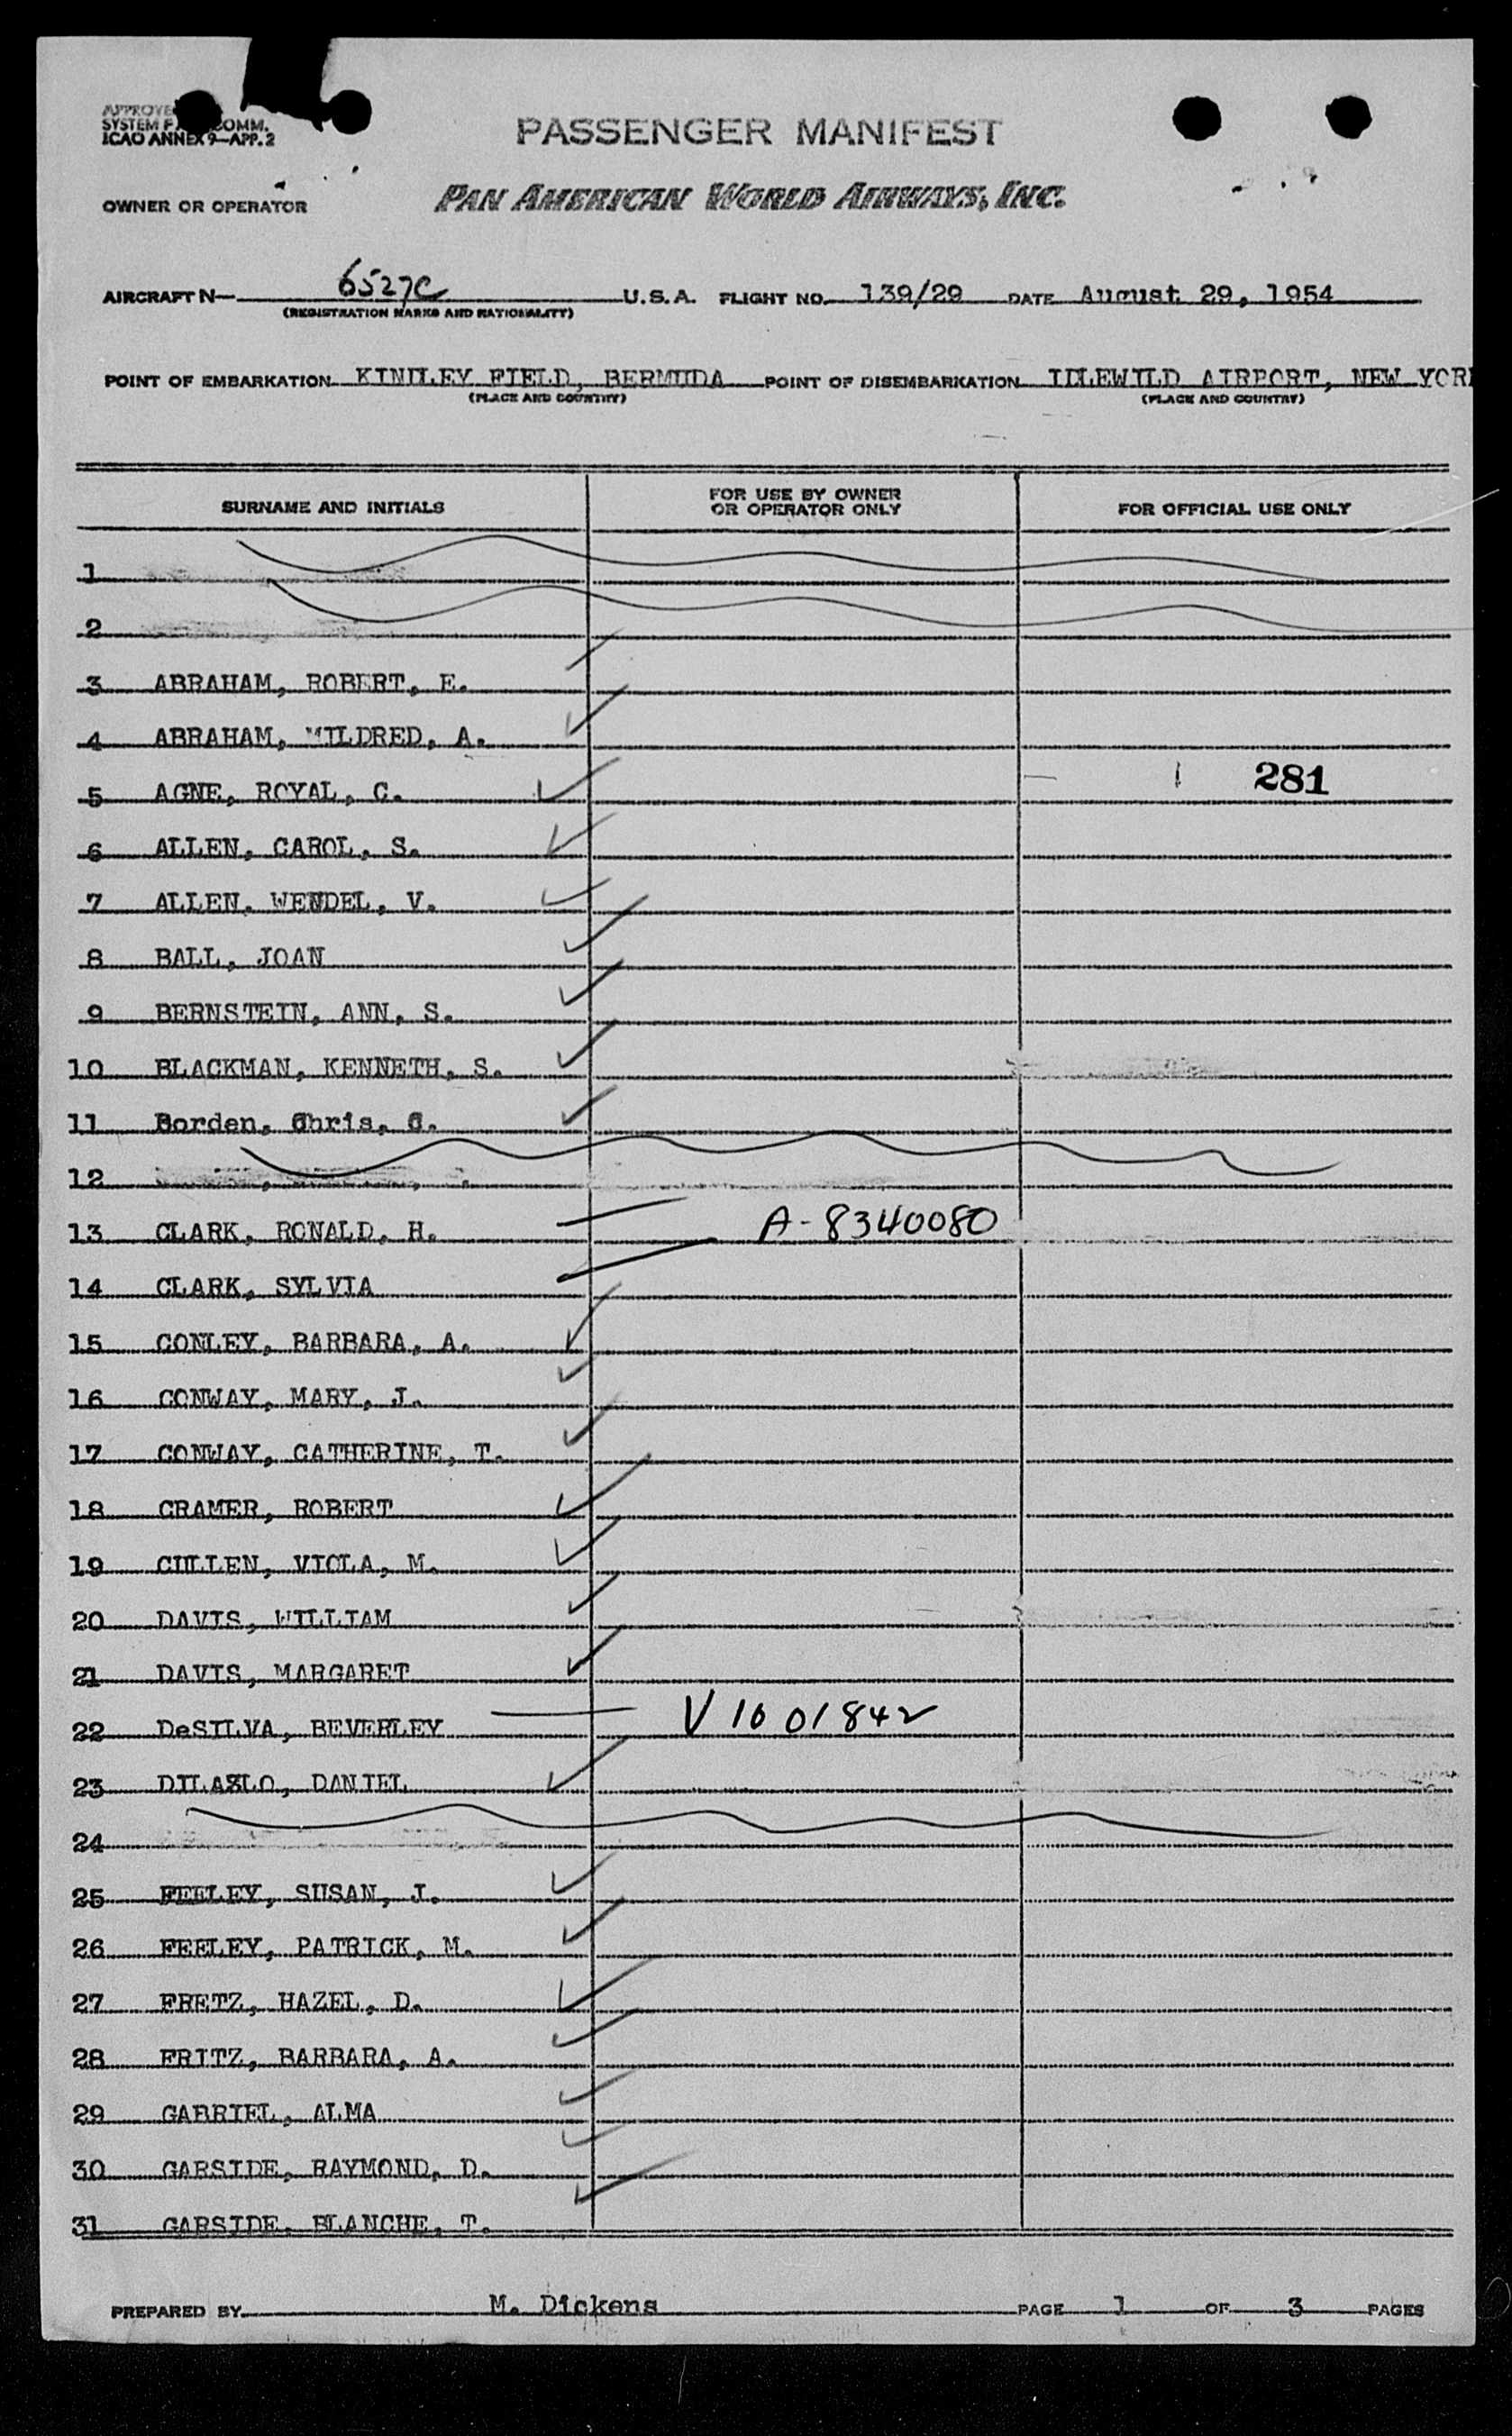 APPROVE
SYSTEM F COMM.
ICAO ANNEX 9—APP. 2
PASSENGER MANIFEST
OWNER OR OPERATOR PAN AMERICAN WORLD AIRWAYS, INC.
AIRCRAFT N— 6527C U.S.A. FLIGHT NO. 139/29 DATE August 29, 1954
(REGISTRATION MARKS AND NATIONALITY)
POINT OF EMBARKATION KINDLEY FIELD, BERMUDA POINT OF DISEMBARKATION IDLEWILD AIRPORT, NEW YORK
(PLACE AND COUNTRY) (PLACE AND COUNTRY)
SURNAME AND INITIALS FOR USE BY OWNER OR OPERATOR ONLY FOR OFFICIAL USE ONLY
1
2
3 ABRAHAM, ROBERT, E.
4 ABRAHAM, MILDRED, A.
5 AGNE, ROYAL, C. 281
6 ALLEN, CAROL, S.
7 ALLEN, WENDEL, V.
8 BALL, JOAN
9 BERNSTEIN, ANN, S.
10 BLACKMAN, KENNETH, S.
11 Borden, Chris, C.
12
13 CLARK, RONALD, H. A-8340080
14 CLARK, SYLVIA
15 CONLEY, BARBARA, A.
16 CONWAY, MARY, J.
17 CONWAY, CATHERINE, T.
18 CRAMER, ROBERT
19 CULLEN, VIOLA, M.
20 DAVIS, WILLIAM
21 DAVIS, MARGARET
22 DeSILVA, BEVERLEY V 1001842
23 DILASLO, DANIEL
24
25 FEELEY, SUSAN, J.
26 FEELEY, PATRICK, M.
27 FRETZ, HAZEL, D.
28 FRITZ, BARBARA, A.
29 GABRIEL, ALMA
30 GARSIDE, RAYMOND, D.
31 GARSIDE, BLANCHE, T.
PREPARED BY M. Dickens PAGE 1 OF 3 PAGES